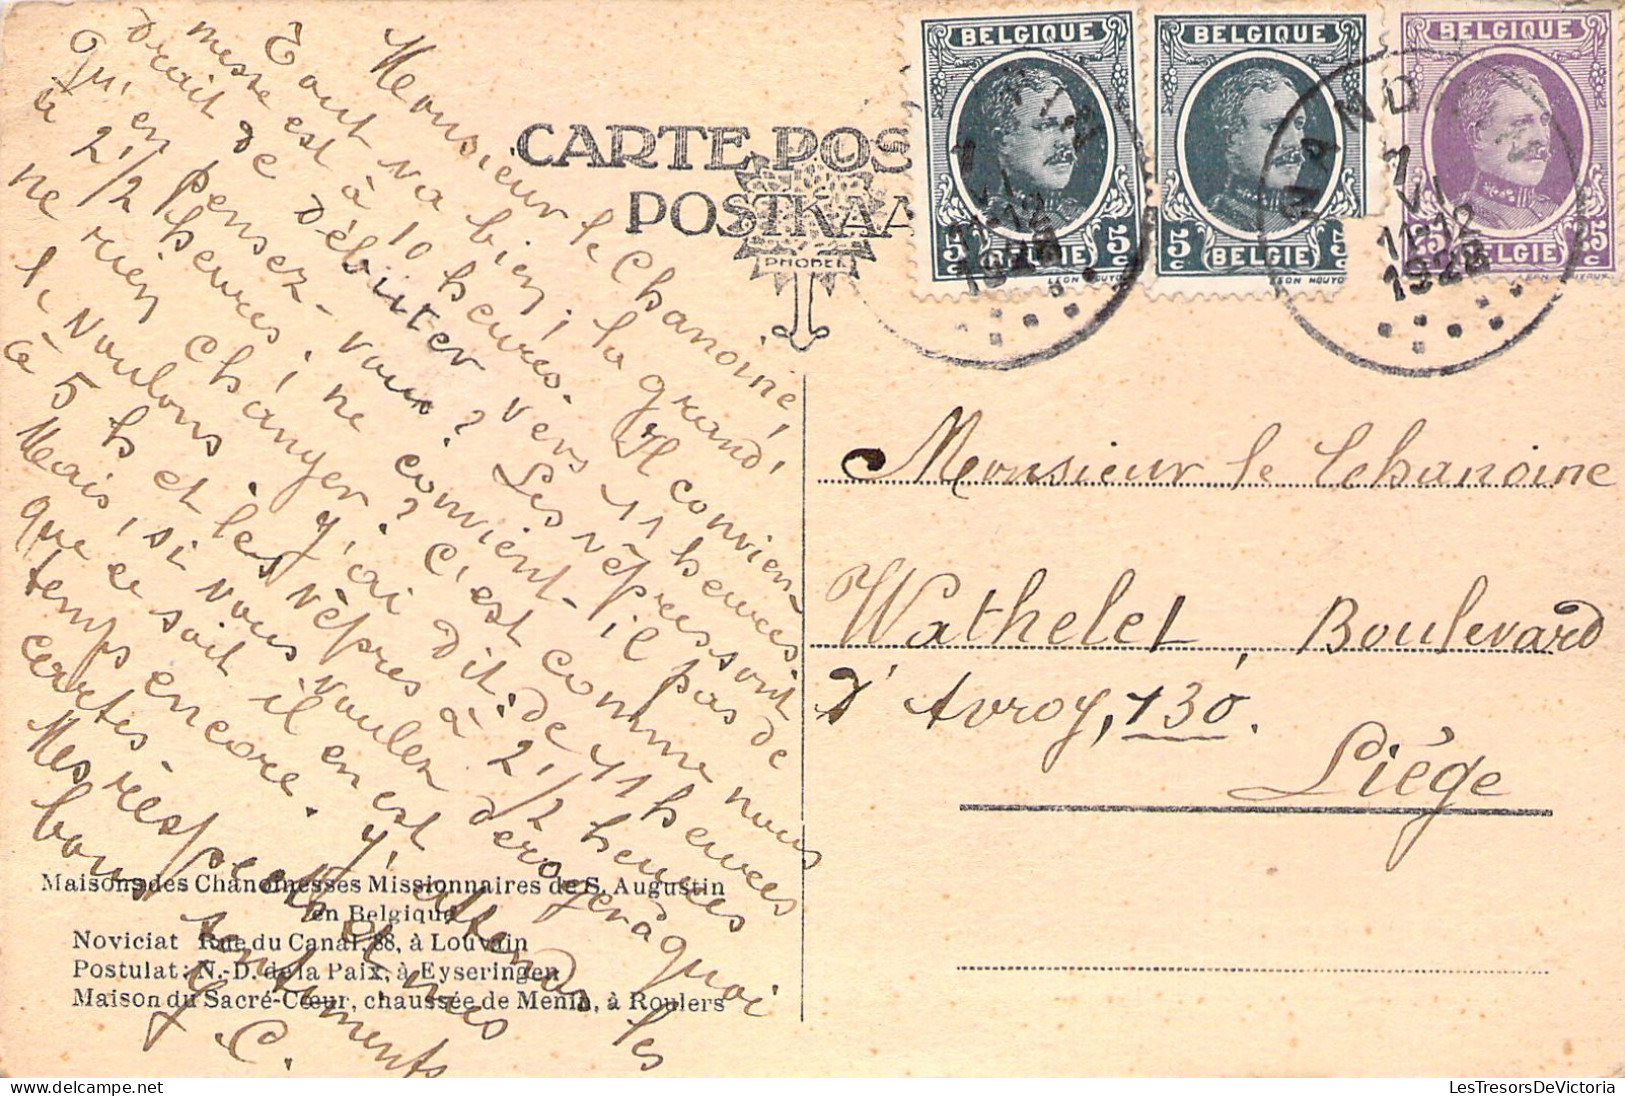 Monsieur le Chanoine,
Tout va bien ; la grand'
messe est à 10 heures. Il convien-
drait de débuter vers 11 heures
Qu'en pensez-vous ? Les vêpres sont
à 2 1/2 heures ; ne convient-il pas de
ne rien changer ? C'est comme nous
le voulons. J'ai dit de 11 heures
à 5 h et les vêpres à 2 1/2 heures
Mais, si vous voulez déroger à quoi
que ce soit il en est
temps encore. J'attends les
cartes
Mes respects et mes
bons sentiments
J. C.
CARTE POS
POSTKAA
PHOBEL
BELGIQUE
5c 5c
BELGIE
BELGIQUE
5c 5c
BELGIE
BELGIQUE
25c 25c
BELGIE
WAND
1
VI
11-12
1928
Monsieur le Chanoine
Wathelet, Boulevard
d'Avroy, 130.
Liège
Maisons des Chanoinesses Missionnaires de S. Augustin
en Belgique
Noviciat Rue du Canal, 88, à Louvain
Postulat: N.-D. de la Paix, à Eyseringen
Maison du Sacré-Cœur, chaussée de Menin, à Roulers
LesTresorsDeVictoria